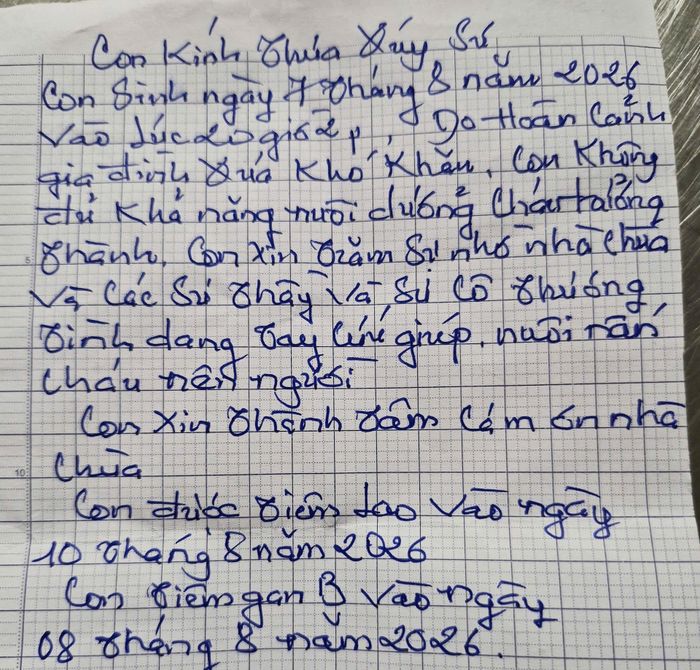 Con Kính thưa Quý Sư
Con sinh ngày 7 tháng 8 năm 2026
Vào lúc 20 giờ 2p, Do Hoàn Cảnh
gia đình Quá Khó Khăn, Con Không
đủ Khả năng nuôi dưỡng Cháu
thành, Con xin trăm sự nhờ nhà chùa
Và Các Sư thầy Và Sư Cô thương
tình dang tay Cứu giúp, nuôi nấn
cháu nên người
Con xin thành tâm Cám ơn nhà
chùa
Con được tiêm lao Vào ngày
10 tháng 8 năm 2026
Con tiêm gan B Vào ngày
08 tháng 8 năm 2026.
5
10